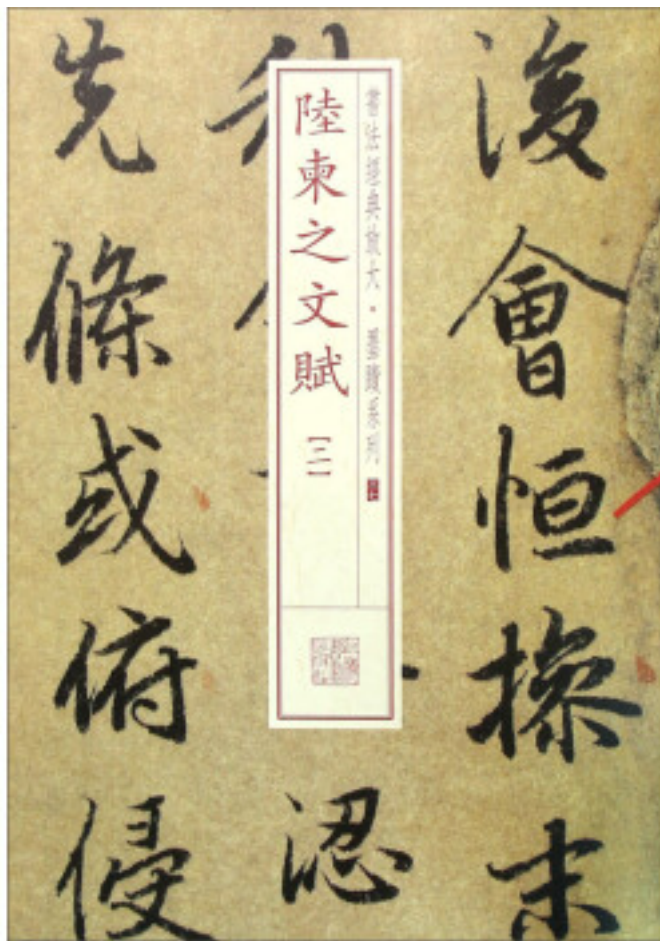 後會恒操末
書法經典放大·墨蹟系列
陸柬之文賦
【二】
涊
先條或俯侵